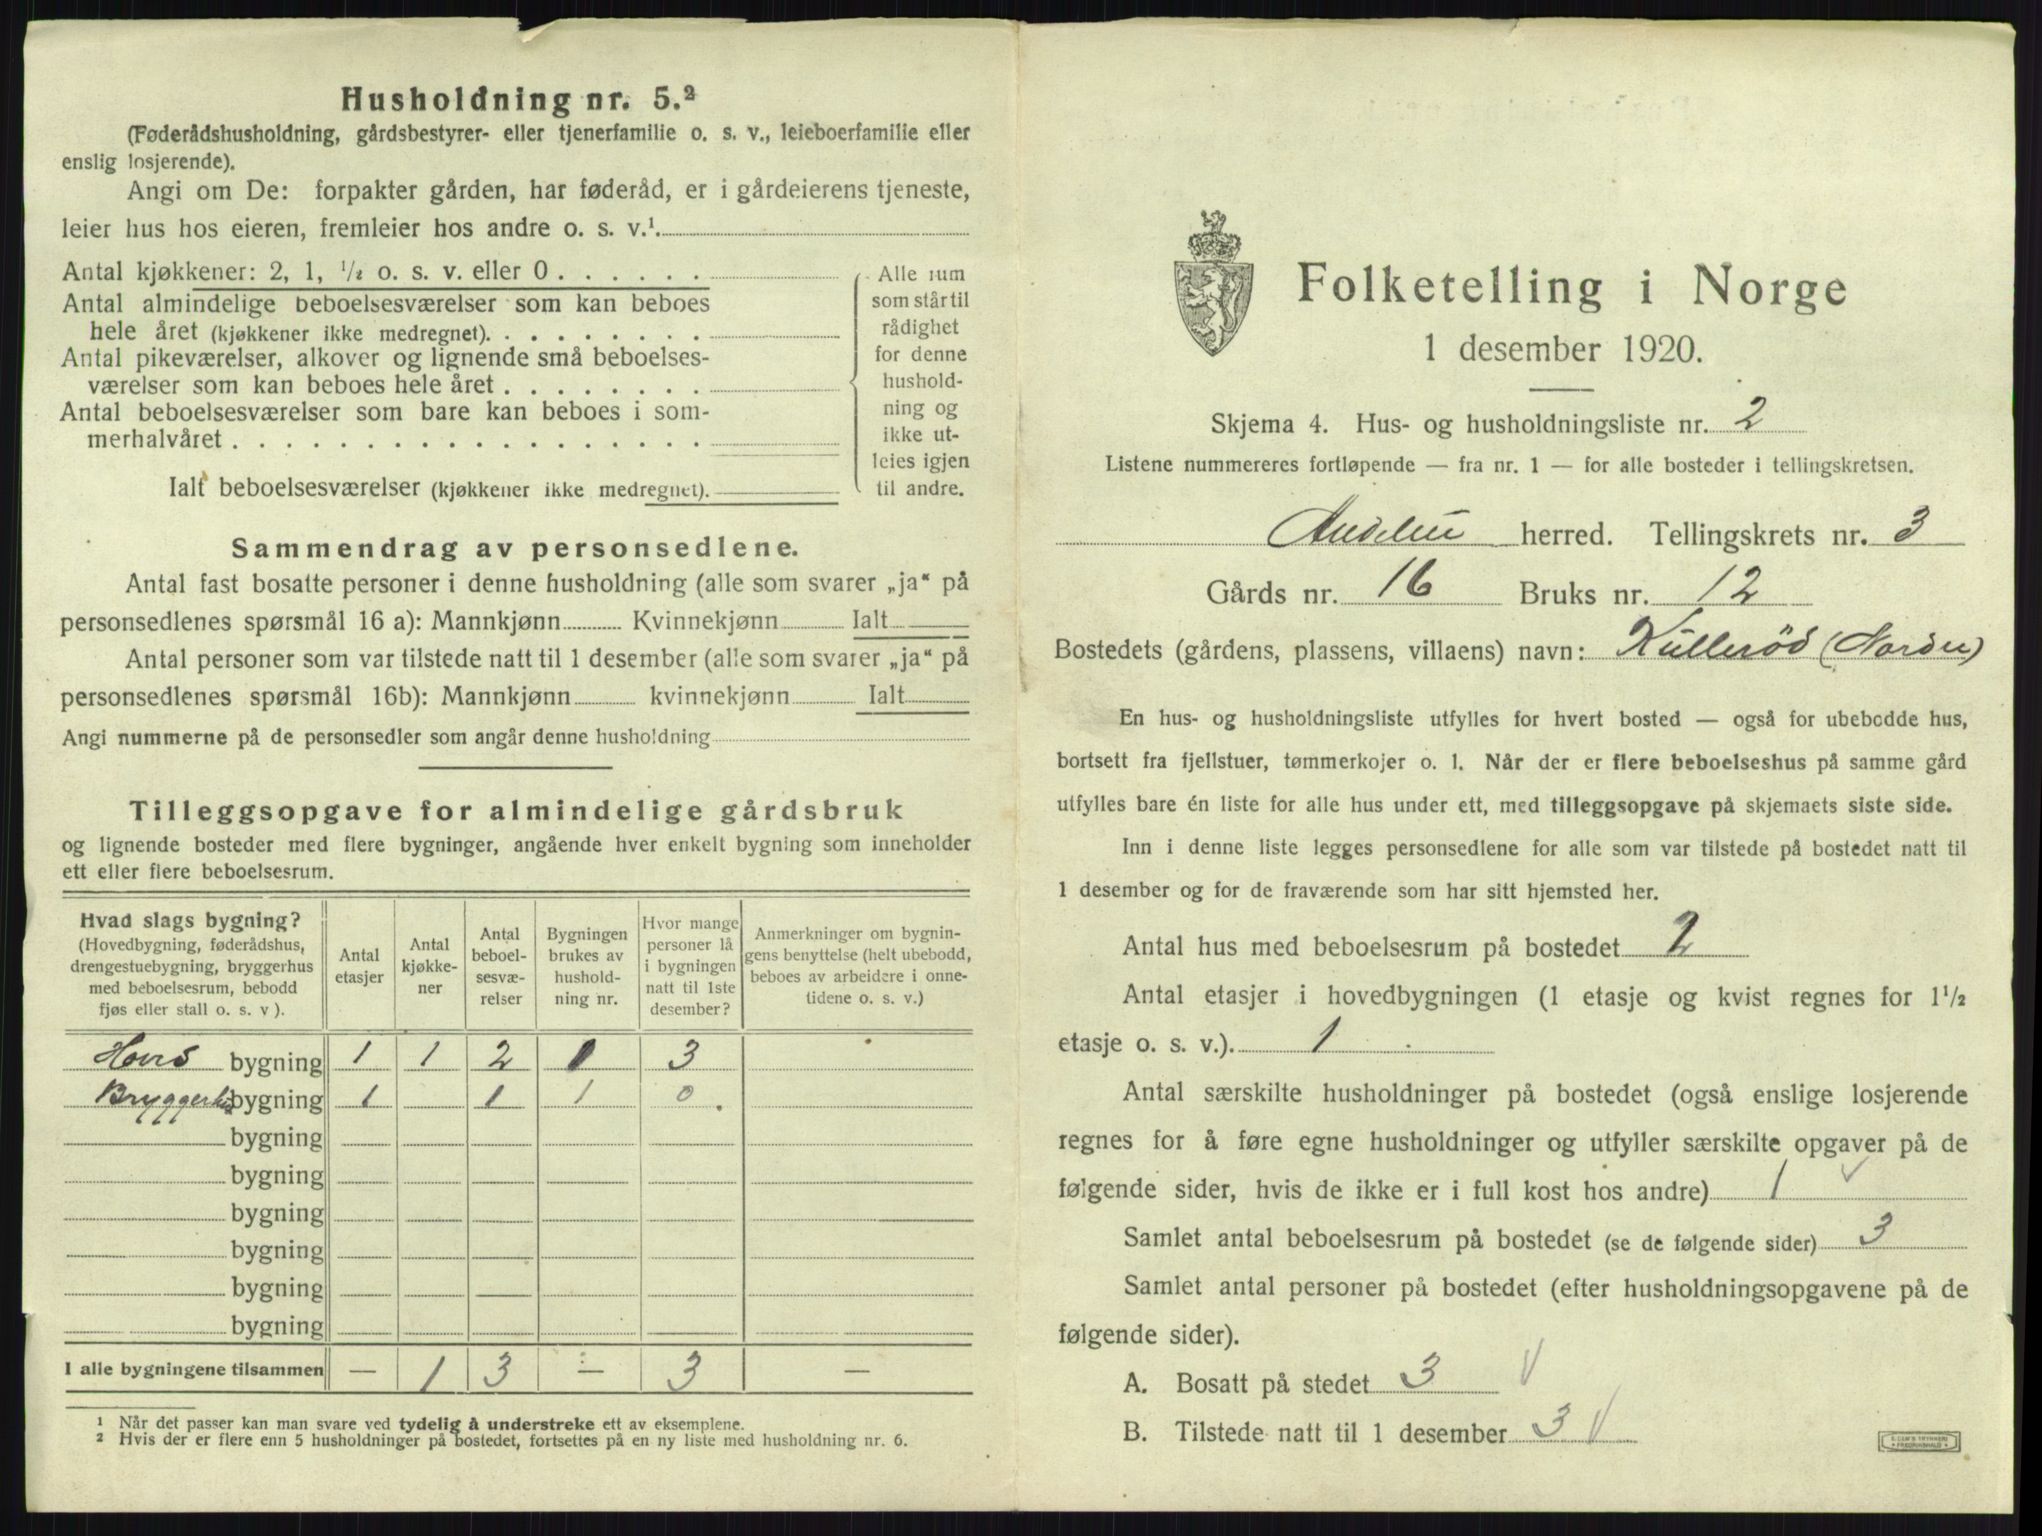 Husholdning nr. 5.²
(Føderådshusholdning, gårdsbestyrer- eller tjenerfamilie o. s. v., leieboerfamilie eller
enslig losjerende).
Angi om De: forpakter gården, har føderåd, er i gårdeierens tjeneste,
leier hus hos eieren, fremleier hos andre o. s. v.¹.
Antal kjøkkener: 2, 1, ½ o. s. v. eller 0 . . . . . .
Antal almindelige beboelsesværelser som kan beboes
hele året (kjøkkener ikke medregnet). . . . . . . . .
Antal pikeværelser, alkover og lignende små beboelses-
værelser som kan beboes hele året . . . . . . . .
Antal beboelsesværelser som bare kan beboes i som-
merhalvåret . . . . . . . . . . . . . . . . . .
Ialt beboelsesværelser (kjøkkener ikke medregnet).
Alle rum
som står til
rådighet
for denne
hushold-
ning og
ikke ut-
leies igjen
til andre.
Sammendrag av personsedlene.
Antal fast bosatte personer i denne husholdning (alle som svarer „ja“ på
personsedlenes spørsmål 16 a): Mannkjønn Kvinnekjønn Ialt
Antal personer som var tilstede natt til 1 desember (alle som svarer „ja“ på
personsedlenes spørsmål 16b): Mannkjønn kvinnekjønn Ialt
Angi nummerne på de personsedler som angår denne husholdning
Tilleggsopgave for almindelige gårdsbruk
og lignende bosteder med flere bygninger, angående hver enkelt bygning som inneholder
ett eller flere beboelsesrum.
Hvad slags bygning?
(Hovedbygning, føderådshus,
drengestuebygning, bryggerhus
med beboelsesrum, bebodd
fjøs eller stall o. s. v ).
Antal
etasjer
Antal
kjøkke-
ner
Antal
beboel-
sesvæ-
relser
Bygningen
brukes av
hushold-
ning nr.
Hvor mange
personer lå
i bygningen
natt til 1ste
desember?
Anmerkninger om bygnin-
gens benyttelse (helt ubebodd,
beboes av arbeidere i onne-
tidene o. s. v.)
bygning 1 1 2 1 3
bygning 1 1 1 0
bygning
bygning
bygning
bygning
bygning
bygning
I alle bygningene tilsammen — 1 3 — 3 —
¹ Når det passer kan man svare ved tydelig å understreke ett av eksemplene.
² Hvis der er flere enn 5 husholdninger på bostedet, fortsettes på en ny liste med husholdning nr. 6.
Folketelling i Norge
1 desember 1920.
Skjema 4. Hus- og husholdningsliste nr. 2
Listene nummereres fortløpende — fra nr. 1 — for alle bosteder i tellingskretsen.
herred. Tellingskrets nr. 3
Gårds nr. 16 Bruks nr. 12
Bostedets (gårdens, plassens, villaens) navn: Kullerød (Nordre)
En hus- og husholdningsliste utfylles for hvert bosted — også for ubebodde hus,
bortsett fra fjellstuer, tømmerkojer o. l. Når der er flere beboelseshus på samme gård
utfylles bare én liste for alle hus under ett, med tilleggsopgave på skjemaets siste side.
Inn i denne liste legges personsedlene for alle som var tilstede på bostedet natt til
1 desember og for de fraværende som har sitt hjemsted her.
Antal hus med beboelsesrum på bostedet 2
Antal etasjer i hovedbygningen (1 etasje og kvist regnes for 1½
etasje o. s. v.). 1
Antal særskilte husholdninger på bostedet (også enslige losjerende
regnes for å føre egne husholdninger og utfyller særskilte opgaver på de
følgende sider, hvis de ikke er i full kost hos andre) 1
Samlet antal beboelsesrum på bostedet (se de følgende sider) 3
Samlet antal personer på bostedet (efter husholdningsopgavene på de
følgende sider).
A. Bosatt på stedet 3
B. Tilstede natt til 1 desember 3